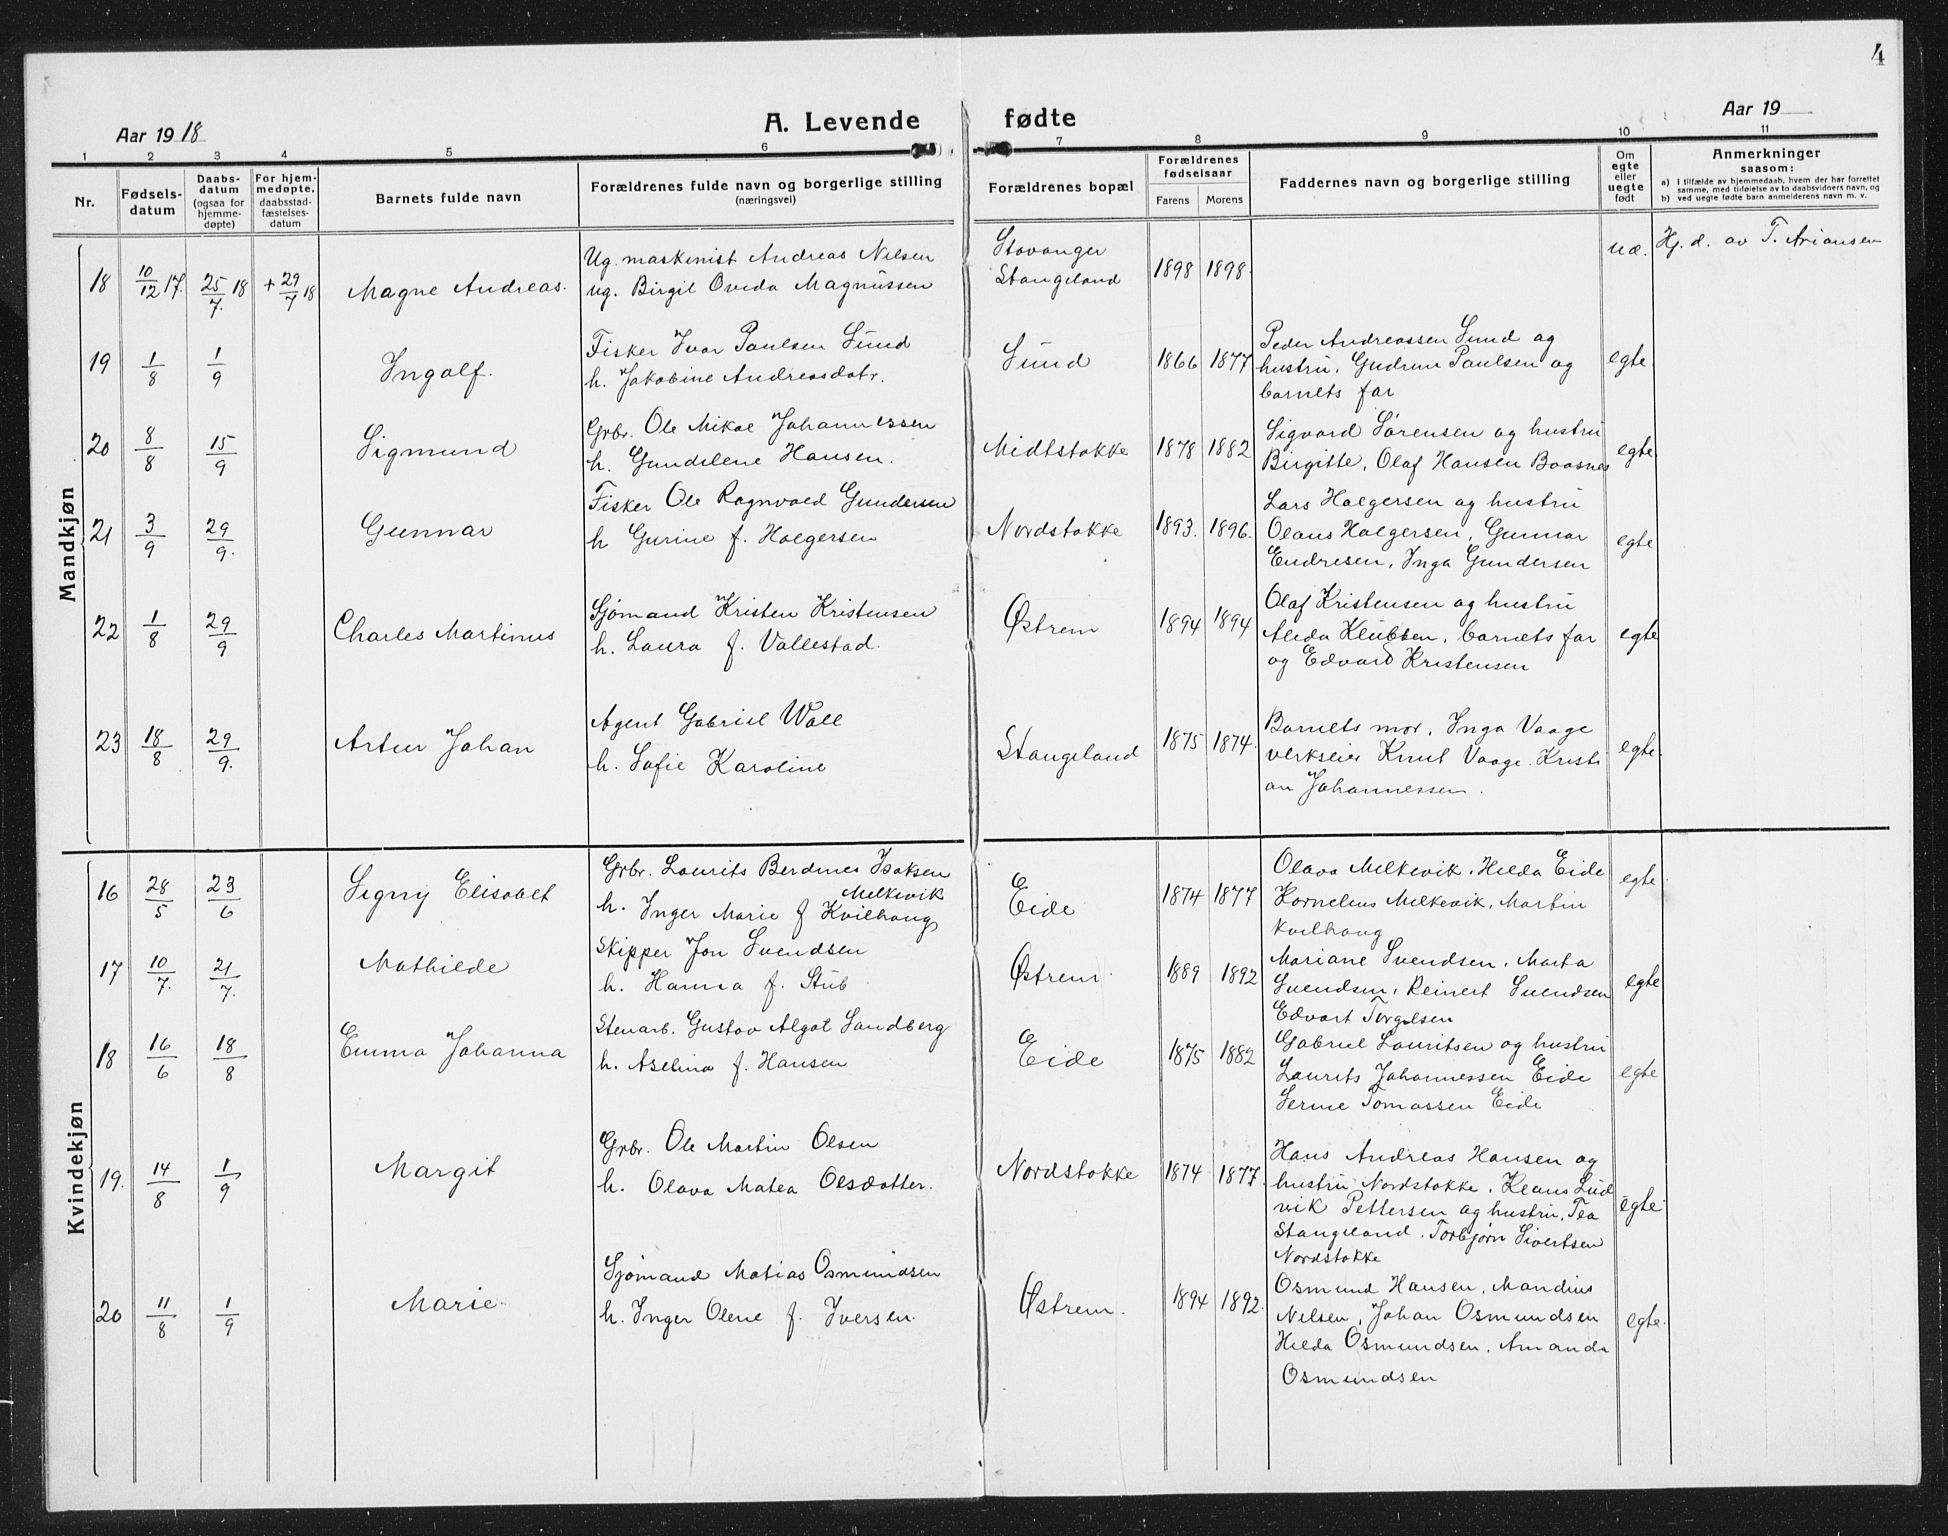 4
Aar 1918
A. Levende fødte
Aar 19
1 2 3 4 5 6 7 8 9 10 11
Nr.
Fødsels-
datum
Daabs-
datum
(ogsaa for
hjemme-
døpte)
For hjem-
medøpte,
daabsstad-
fæstelses-
datum
Barnets fulde navn
Forældrenes fulde navn og borgerlige stilling
(næringsvei)
Forældrenes bopæl
Forældrenes
fødselsaar
Farens Morens
Faddernes navn og borgerlige stilling
Om
egte
eller
uegte
født
Anmerkninger
saasom:
a) i tilfælde av hjemmedaab, hvem der har forrettet
samme, med tilføielse av to daabsvidners navn, og
b) ved uegte fødte barn anmelderens navn m. v.
Mandkjøn
18 10/12 17. 25/7. 18 + 29/7 18 Magne Andreas.
Ug. maskinist Andreas Nilsen
ug. Birgit Ovida Magnussen
Stavanger
Stangeland
1898 1898.
uæ.
Hj. d. av T. Ariansen
19 1/8 1/9 Ingolf.
Fisker Ivar Paulsen Sund
h. Jakobine Andreasdatr.
Sund 1866 1877
Peder Andreassen Sund og
hustru, Gudrun Paulsen og
barnets far
egte
20 8/8 15/9 Sigmund
Grbr. Ole Mikal Johannessen
h. Gundelene Hansen.
Midtstokke 1878 1882
Sigvard Sørensen og hustru
Birgitte, Olaf Hansen Boasnes
egte
21 3/9 29/9. Gunnar
Fisker Ole Ragnvald Gundersen
h Gurine f. Holgersen
Nordstokke 1893. 1896.
Lars Holgersen og hustru
Olaus Holgersen, Gunnar
Endresen, Inga Gundersen
egte
22 1/8 29/9 Charles Martinus
Sjømand Kristen Kristensen
h. Laura f. Vallestad.
Østrem 1894 1894
Olaf Kristensen og hustru
Alida Klubben, barnets far
og Edvard Kristensen
egte
23 18/8 29/9. Artur Johan
Agent Gabriel Wall
h. Sofie Karoline
Stangeland 1875 1874.
Barnets mor, Inga Vaage
verkseier Knut Vaage. Kristi
an Johannessen.
egte.
Kvindekjøn
16 28/5 23/6 Signy Elisabet
Grbr. Laurits Berdines Isaksen
Melkevik
h. Inger Marie f Kvilhaug
Eide 1874 1877
Olava Melkevik, Hilda Eide
Kornelius Melkevik, Martin
Kvilhaug
egte
17 10/7. 21/7. Mathilde
Skipper Jon Svendsen
h. Hanna f. Stub
Østrem. 1889 1892
Mariane Svendsen, Marta
Svendsen, Reinert Svendsen
Edvart Torgilsen
egte
18 16/6 18/8 Emma Johanna
Stenarb. Gustav Algot Sandberg
h. Aselina f. Hansen
Eide 1875 1882
Gabriel Lauritsen og hustru
Laurits Johannessen Eide
Serine Tomassen Eide
egte
19. 14/8 1/9 Margit
Grbr. Ole Martin Olsen
h. Olava Matea Olsdatter.
Nordstokke 1874 1877.
Hans Andreas Hansen og
hustru Nordstokke, Klaus Lud
vik Pettersen og hustru, Tea
Stangeland. Torbjørn Sivertsen
Nordstokke
egte
20 11/8 1/9 Marie.
Sjømand Matias Osmundsen
h. Inger Olene f. Iversen.
Østrem. 1894 1892.
Osmund Hansen, Mandius
Nilsen, Johan Osmundsen
Hilda Osmundsen, Amanda
Osmundsen
egte.